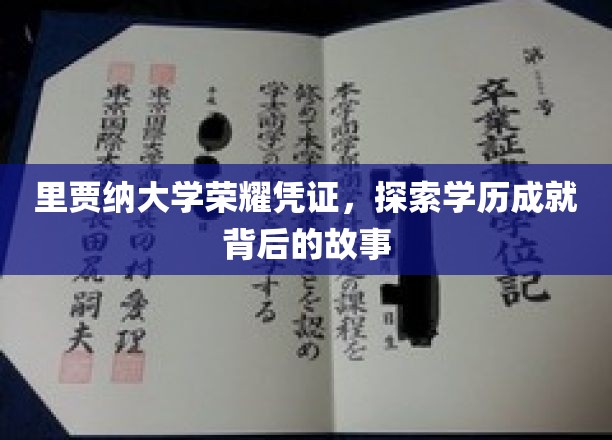 里贾纳大学荣耀凭证，探索学历成就
背后的故事
第 号
卒業証 位記
本学商学部 の課程を
修めて本学 とを認め
学士(商学)の する
平成
東京国際大学 田村愛理
東京国際大学 長田尻嗣夫